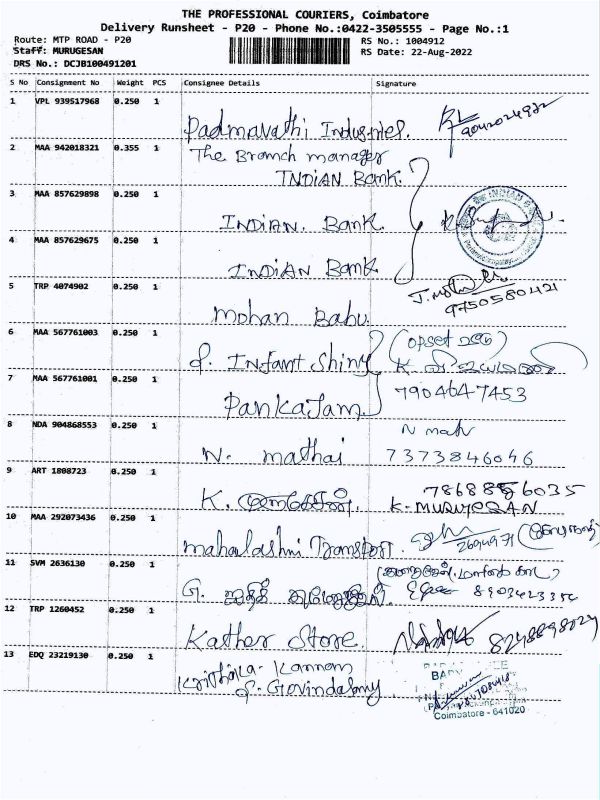 THE PROFESSIONAL COURIERS, Coimbatore
Delivery Runsheet - P20 - Phone No.:0422-3505555 - Page No.:1
Route: MTP ROAD - P20
RS No.: 1004912
Staff: MURUGESAN
RS Date: 22-Aug-2022
DRS No.: DCJB100491201
S No Consignment No Weight PCS Consignee Details Signature
1 VPL 939517968 0.250 1
Padmavathi Industries.
2 MAA 942018321 0.355 1 The Branch manager
INDIAN Bank.
3 MAA 857629898 0.250 1
INDIAN. Bank
4 MAA 857629675 0.250 1
INDIAN Bank
5 TRP 4074902 0.250 1
Mohan Babu 9750580421
6 MAA 567761003 0.250 1
P. Infant Shiny
7 MAA 567761001 0.250 1 7904647453
PankaJam
8 NDA 904868553 0.250 1
N. mathai 7373846046
9 ART 1808723 0.250 1
K. முருகேசன். K. MURUGESAN
10 MAA 292073436 0.250 1
mahalashmi Transport.
11 SVM 2636130 0.250 1
G. 8903423356
12 TRP 1260452 0.250 1
Kather Store
13 EDQ 23219130 0.250 1
Krithika - Kannan
P. Govindasmy
Coimbatore - 641020